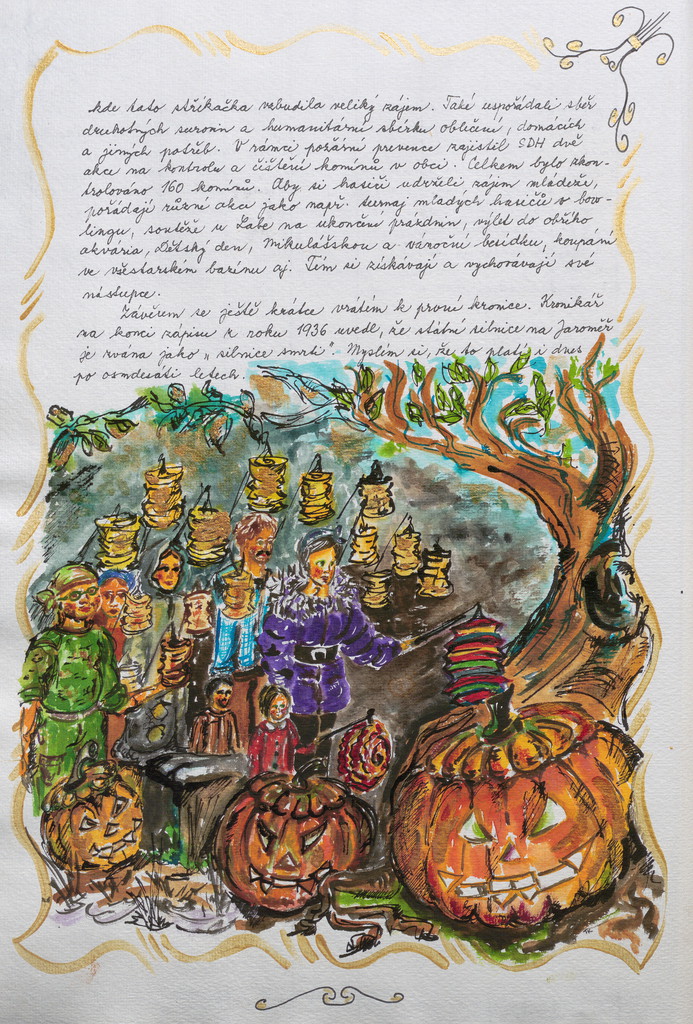 kde tato stříkačka vzbudila veliký zájem. Také uspořádali sběr
druhotných surovin a humanitární sbírku oblíčení, domácích
a jiných potřeb. V rámci požární prevence zajistil SDH dvě
akce na kontrolu a čištění komínů v obci. Celkem bylo zkon-
trolováno 160 komínů. Aby si hasiči udrželi zájem mládeže,
pořádají různé akce jako např. turnaj mladých hasičů v bow-
lingu, soutěže u Labe na ukončení prázdnin, výlet do obřího
akvária, Dětský den, Mikulášskou a vánoční besídku, koupání
ve všestarském bazénu aj. Tím si získávají a vychovávají své
nástupce.
Závěrem se ještě krátce vrátím k první kronice. Kronikář
na konci zápisu z roku 1936 uvedl, že státní silnice na Jaroměř
je zvána jako „silnice smrti". Myslím si, že to platí i dnes
po osmdesáti letech.